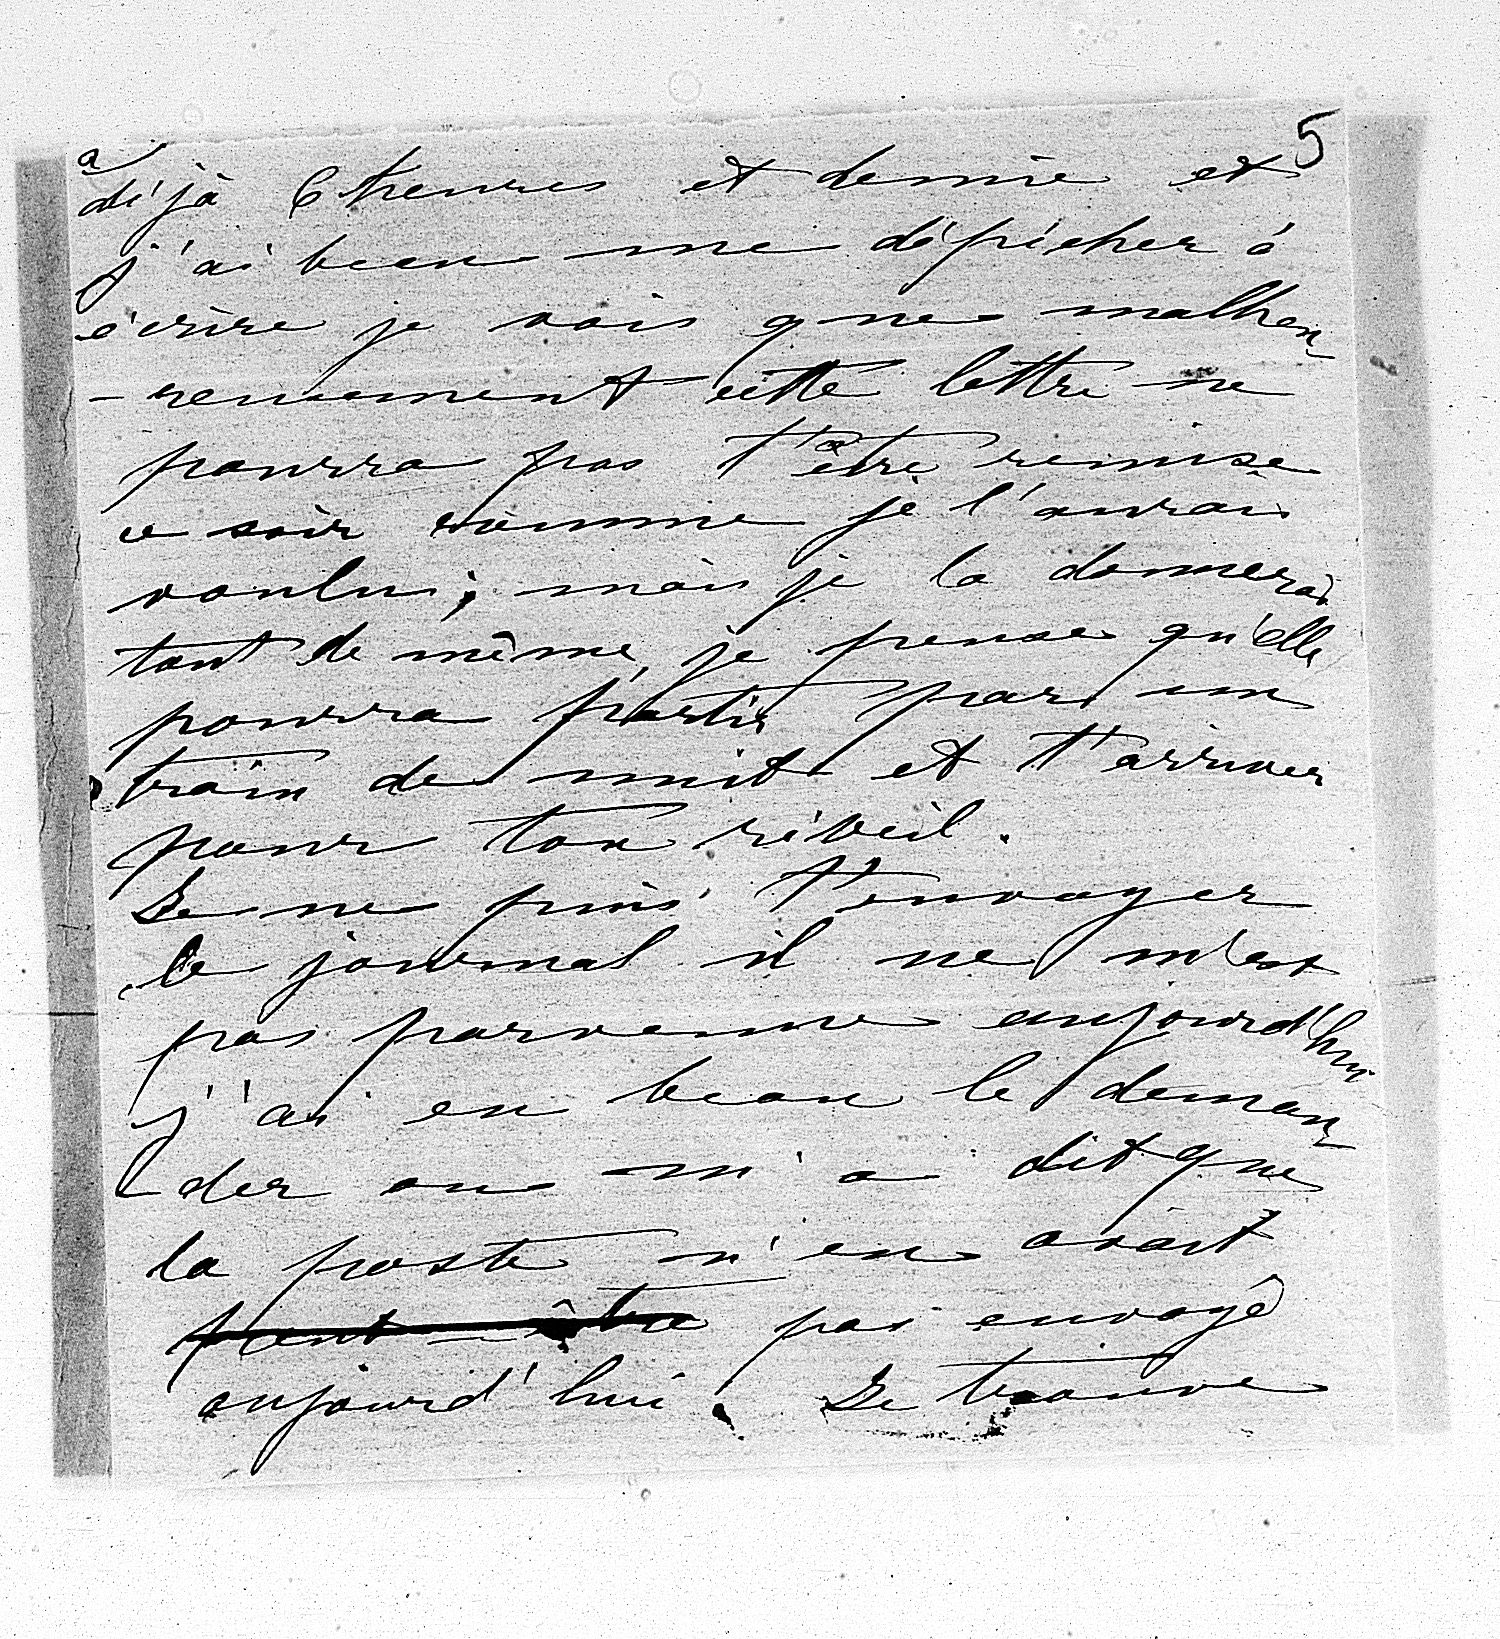 5
a
déjà 6 heures et demie et
j'ai beau me dépêcher à
écrire je vois que malheu
-reusement cette lettre ne
pourra pas t'être remise
ce soir comme je l'aurais
voulu; mais je la donnerai
tout de même, je pense qu'elle
pourra partir par un
train de nuit et t'arriver
pour ton réveil.
Je ne puis t'envoyer
le journal il ne m'est
pas parvenu aujourd'hui
j'ai eu beau le deman
der on m'a dit que
la poste n'en avait
peut-être pas envoyé
aujourd'hui. Je trouve